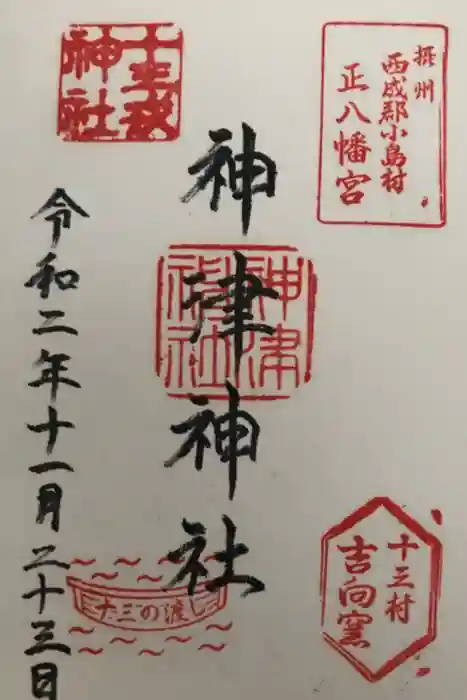 摂州
西成郡小島村
正八幡宮
十三戎
神社
神津神社
神津
神社
十三村
吉向窯
十三の渡
令和二年十一月二十三日